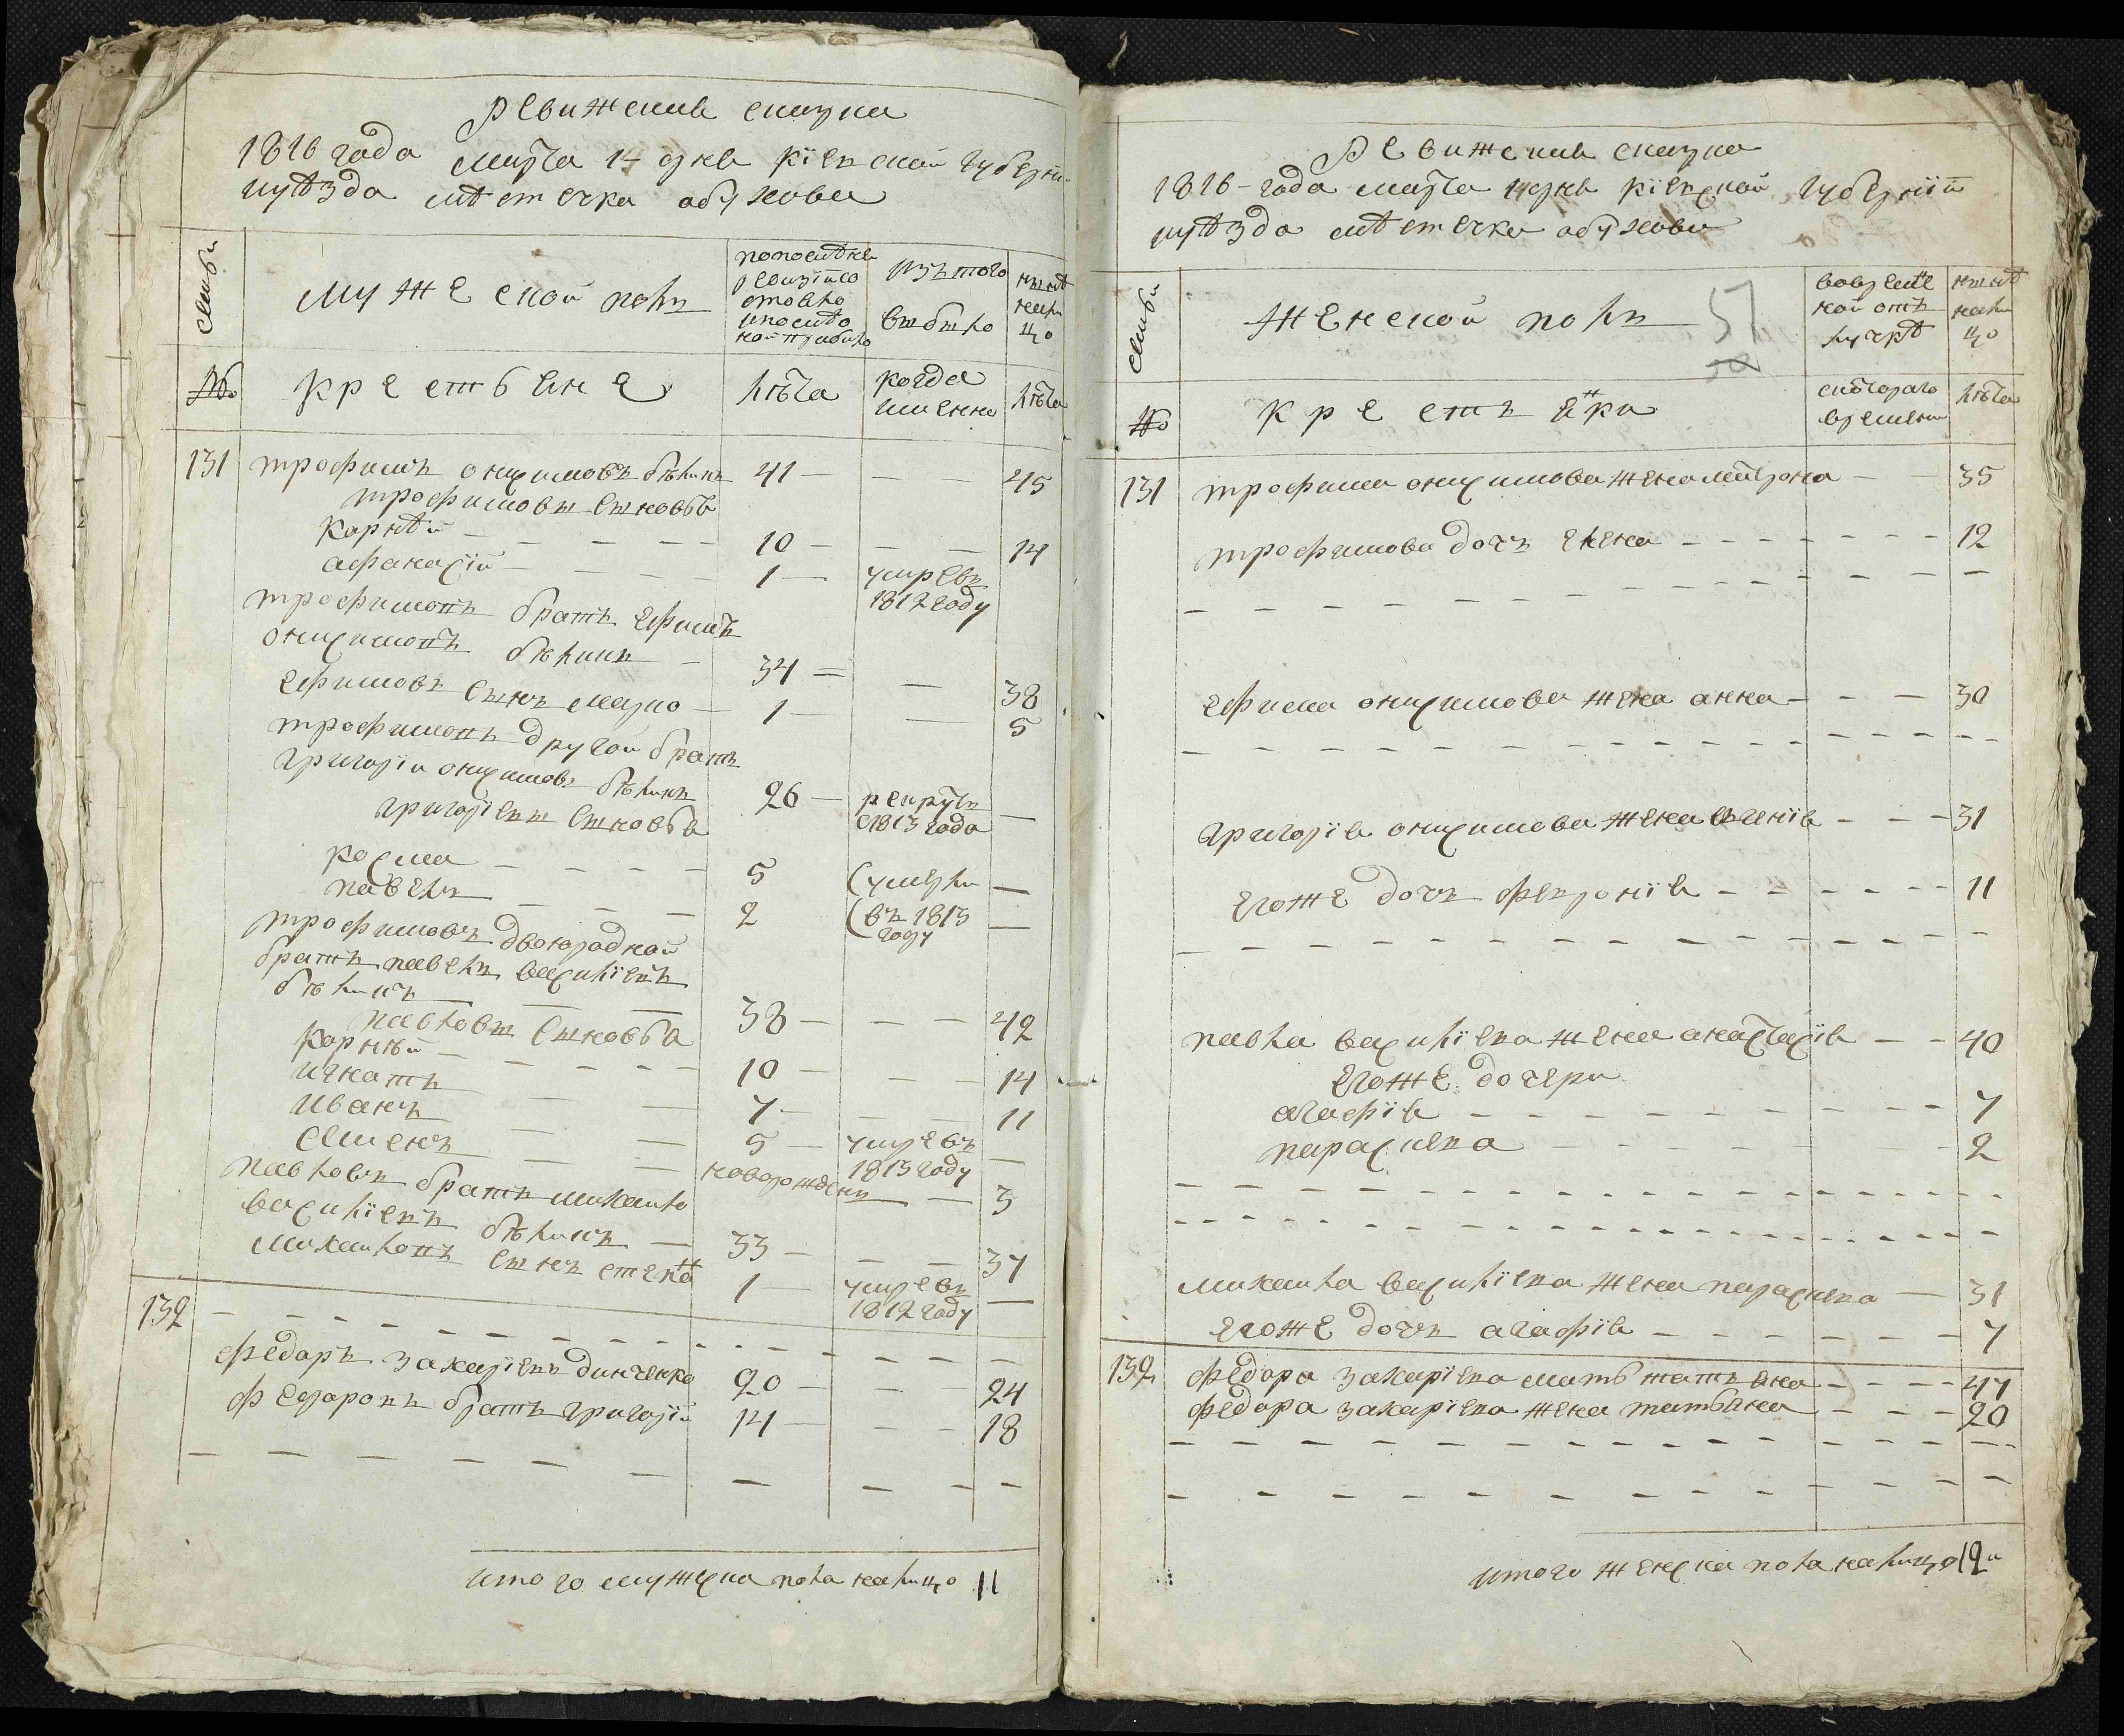 Ревижская сказка
1816 года марта 14 дня кіевской губерни
уѣзда мѣстечка обухова
семьи
мужеской полъ
по последней ревизіи состояло и после оной прибыло
изъ того выбыло
ныне налицо
№
крестьяне
лѣта
когда именно
лѣта
131 трофимъ онисимовъ бѣликъ 41 — — — 45
трофимовы сыновья
карнѣй — — — — — 10 — — — 14
афанасій — — — — 1 — умре въ 1812 году
трофимовъ братъ ефимъ
онисимовъ бѣликъ — 34 — — 38
ефимовъ сынъ марко — 1 — — 5
трофимовъ другой братъ
григорій онисимовъ бѣликъ 26 — рекрутъ с 1813 года —
григоріевы сыновья
косма — — — — 5 (умерли —
павелъ — — — 2 (въ 1813 году —
трофимовъ двоюродной
братъ павелъ василіевъ
бѣликъ — — — 38 — — — 42
павловы сыновья
карнѣй — — — — — 10 — — — 14
игнатъ — — 7 — — — 11
иванъ — — 5 — умре въ 1813 году —
семенъ — — новорожденъ — — 3
павловъ братъ михаило
василіевъ бѣликъ — 33 — — — 37
михаиловъ сынъ степанъ 1 — умре въ 1812 году —
132 — — — — — — — — — — — — — —
федоръ захаріевъ динченко 20 — — 24
федоровъ братъ григорій 14 — — — 18
— — — — — — — — — —
итого мужска пола налицо 11
Ревижская сказка
1816 — года марта 14 дня кіевской губерніи
уѣзда мѣстечка обухова
семьи
женской полъ
57
во временной отлучкѣ
ныне налицо
№
крестьянки
с котораго времени
лѣта
131 трофима онисимова жена матрона — — 35
трофимова дочь елена — — — — — — — 12
— — — — — — — — — — — — — —
ефима онисимова жена анна — — — 30
— — — — — — — — — — — — — —
григорія онисимова жена евгенія — — — 31
егоже дочь февронія — — — — — — 11
— — — — — — — — — — — — — —
павла василіева жена анастасія — — 40
егоже дочери
агафія — — — — — — — — — 7
парасцева — — — — — — 2
— — — — — — — — — — — — — —
— — — — — — — — — — — — — —
михаила василіева жена парасцева — 31
егоже дочь агафія — — — — — — — 7
132 федора захаріева мать татьяна — — — — 47
федора захаріева жена татьяна — — — 20
— — — — — — — — — — — — — —
— — — — — — — — — — — — — —
итого женска пола налицо 12